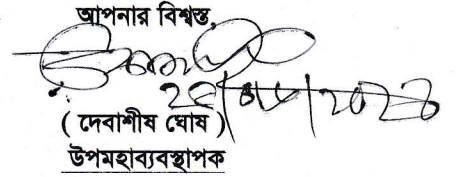 আপনার বিশ্বস্ত,
( দেবাশীষ ঘোষ )
উপমহাব্যবস্থাপক